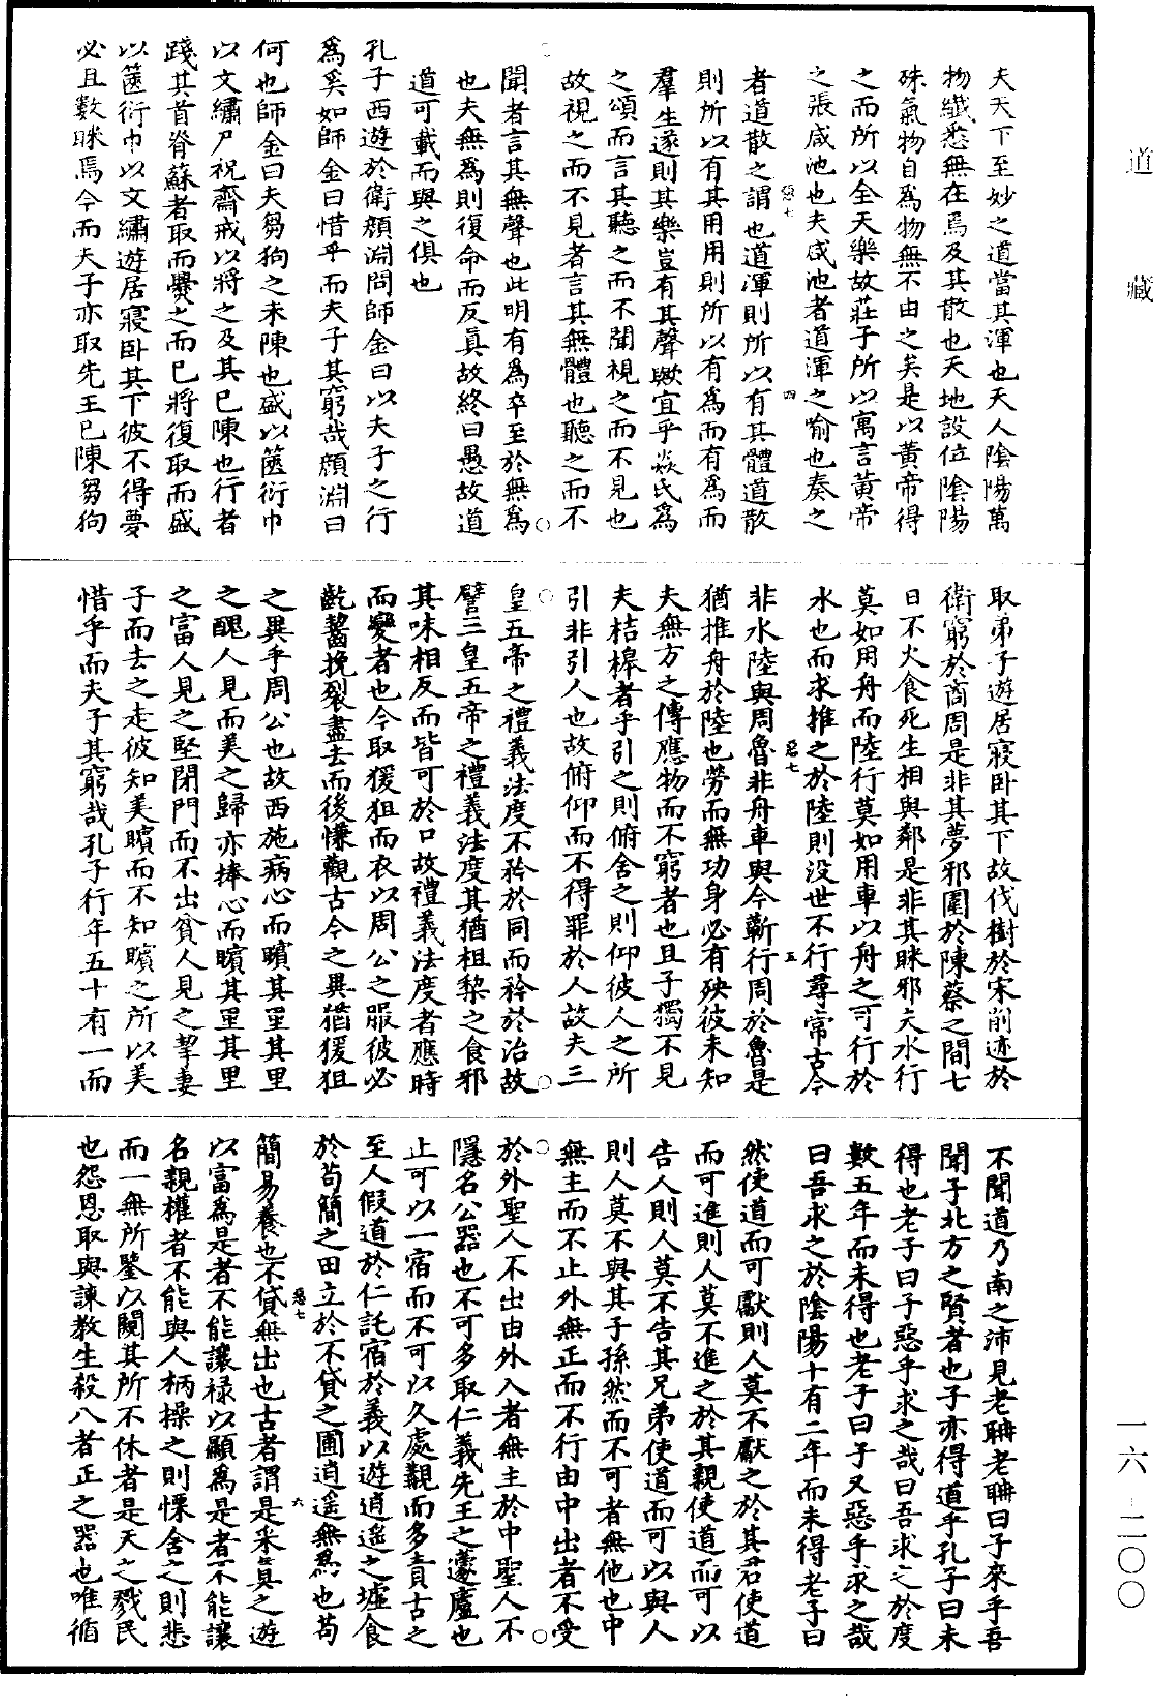 道藏
夫天下至妙之道當其渾也天人陰陽萬
物纖悉無在焉及其散也天地設位陰陽
殊氣物自爲物無不由之矣是以黃帝得
之而所以全天樂故莊子所以寓言黃帝
之張咸池也夫咸池者道渾之喻也奏之
者道散之謂也道渾則所以有其體道散
則所以有其用用則所以有爲而有爲而
羣生遂則其樂豈有其聲歟宜乎焱氏爲
之頌而言其聽之而不聞視之而不見也
故視之而不見者言其無體也聽之而不
聞者言其無聲也此明有爲卒至於無爲
也夫無爲則復命而反真故終曰愚故道
道可載而與之俱也
孔子西遊於衛顏淵問師金曰以夫子之行
爲奚如師金曰惜乎而夫子其窮哉顏淵曰
何也師金曰夫芻狗之未陳也盛以篋衍巾
以文繡尸祝齋戒以將之及其已陳也行者
踐其首脊蘇者取而爨之而已將復取而盛
以篋衍巾以文繡遊居寢卧其下彼不得夢
必且數眯焉今而夫子亦取先王已陳芻狗
取弟子遊居寢卧其下故伐樹於宋削迹於
衛窮於商周是非其夢邪圍於陳蔡之間七
日不火食死生相與鄰是非其眯邪夫水行
莫如用舟而陸行莫如用車以舟之可行於
水也而求推之於陸則没世不行尋常古今
非水陸與周魯非舟車與今蘄行周於魯是
猶推舟於陸也勞而無功身必有殃彼未知
夫無方之傳應物而不窮者也且子獨不見
夫桔橰者乎引之則俯舍之則仰彼人之所
引非引人也故俯仰而不得罪於人故夫三
皇五帝之禮義法度不矜於同而矜於治故
譬三皇五帝之禮義法度其猶柤棃之食邪
其味相反而皆可於口故禮義法度者應時
而變者也今取猨狙而衣以周公之服彼必
齕齧挽裂盡去而後慊觀古今之異猶猨狙
之異乎周公也故西施病心而矉其里其里
之醜人見而美之歸亦捧心而矉其里其里
之富人見之堅閉門而不出貧人見之挈妻
子而去之走彼知美矉而不知矉之所以美
惜乎而夫子其窮哉孔子行年五十有一而
不聞道乃南之沛見老聃老聃曰子來乎吾
聞子北方之賢者也子亦得道乎孔子曰未
得也老子曰子惡乎求之哉曰吾求之於度
數五年而未得也老子曰子又惡乎求之哉
曰吾求之於陰陽十有二年而未得老子曰
然使道而可獻則人莫不獻之於其君使道
而可進則人莫不進之於其親使道而可以
告人則人莫不告其兄弟使道而可以與人
則人莫不與其子孫然而不可者無他也中
無主而不止外無正而不行由中出者不受
於外聖人不出由外入者無主於中聖人不
隱名公器也不可多取仁義先王之蘧廬也
止可以一宿而不可以久處覯而多責古之
至人假道於仁託宿於義以遊逍遥之墟食
於苟簡之田立於不貸之圃逍遥無爲也苟
簡易養也不貸無出也古者謂是采真之遊
以富爲是者不能讓禄以顯爲是者不能讓
名親權者不能與人柄操之則慄舍之則悲
而一無所鑒以闚其所不休者是天之戮民
也怨恩取與諫教生殺八者正之器也唯循
一六-二〇〇